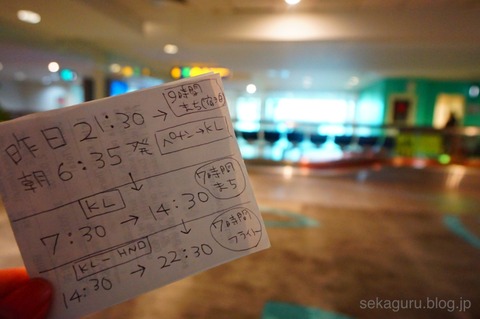 昨日 21:30 → 9時間まち(宿あり)
朝 6:35 発 ペナン→KL
↓
KL
7:30 → 14:30 7時間まち
↓
KL-HND
14:30 → 22:30 7時間フライト
sekaguru.blog.jp